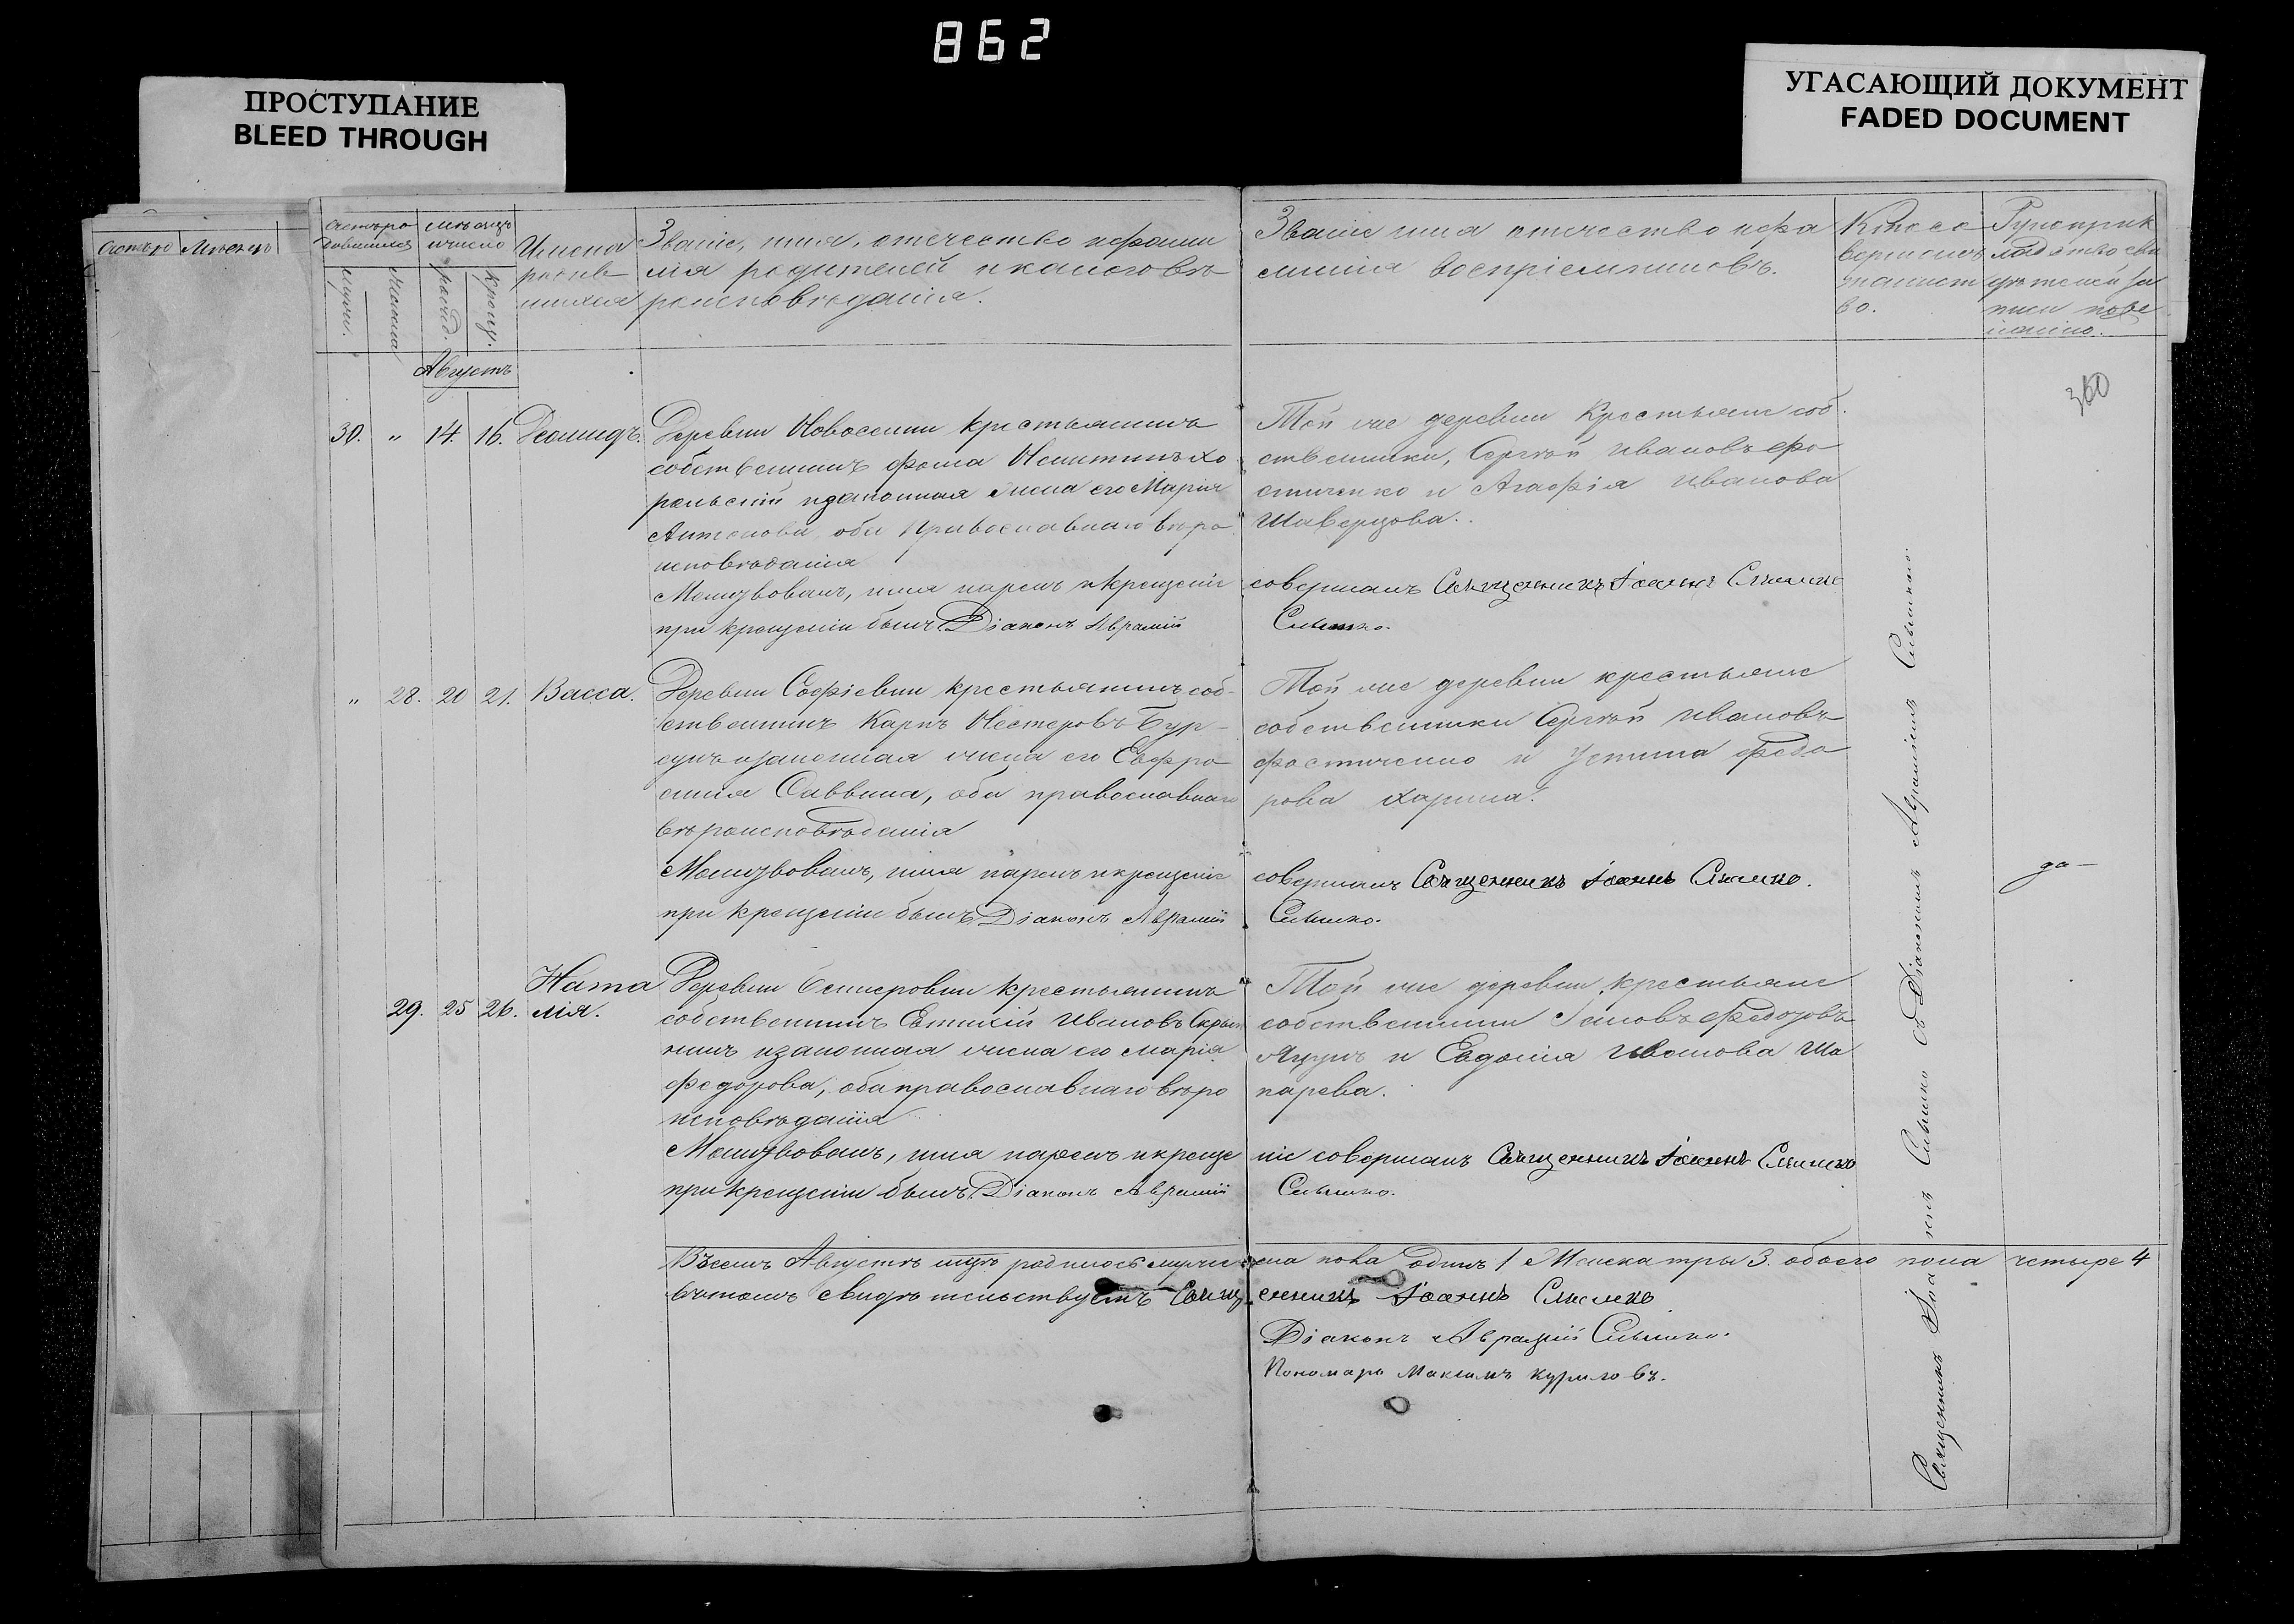 862
ПРОСТУПАНИЕ
BLEED THROUGH
УГАСАЮЩИЙ ДОКУМЕНТ
FADED DOCUMENT
Счетъ ро
дившихся
мѣсяцъ
и число
Имена
родив
шихся
Званіе, имя, отечество и фами
лія родителей и какого вѣ
роисповѣданія.
Званіе имя отечество и фа
милія воспріемниковъ.
Кто со
вершалъ
таинст
во.
Рукоприк
ладство сви
дѣтелей за
писи по же
ланію.
рожд.
крещ.
Августъ
360
30. " 14. 16. Леонидъ.
Деревни Новоселки крестьянинъ
собственникъ Фома Никитинъ Хо
рольскій и законная жена его Марія
Антонова, оба Православнаго вѣро
исповѣданія
Молитвовалъ, имя нарекъ и крещеніе
при крещеніи былъ Діаконъ Аврамій
Той же деревни Крестьяне соб
ственники, Сергѣй Ивановъ Фо
стиченко и Агафія Иванова
Шаверцова.
совершалъ Священникъ Іоаннъ Слынко
Слынко.
" 28. 20 21. Васса.
Деревни Софіевки крестьянинъ соб-
ственникъ Карпъ Нестеровъ Бур-
сукъ и законная жена его Евфро
синія Саввина, оба православнаго
вѣроисповѣданія
Молитвовалъ, имя нарекъ и крещеніе
при крещеніи былъ Діаконъ Аврамій
Той же деревни крестьяне
собственники Сергѣй Ивановъ
Фостиченко и Устина Федо
рова Харина.
совершалъ Священникъ Іоаннъ Слынко.
Слынко.
да—
29. 25 26. Ната
лія.
Деревни крестьянинъ
собственникъ Евтихій Ивановъ
и законная жена его Марія
Федорова, оба православнаго вѣро
исповѣданія
Молитвовалъ, имя нарекъ и креще
при крещеніи былъ Діаконъ Аврамій
Той же деревни крестьяне
собственники Федоровъ
Яцукъ и Евдокія Иванова Ша
парева.
ніе совершалъ Священникъ Іоаннъ Слынко
Слынко.
Священникъ Іоаннъ Слынко съ Діакономъ Авраміемъ Слынкомъ
Всѣхъ въ Августѣ родилось мужес
ска пола одинъ 1 Женска три 3. обоего пола четыре 4
въ томъ свидѣтельствуетъ Свящ
енникъ Іоаннъ Слынко
Діаконъ Аврамій Слынко.
Пономарь Максимъ Куриловъ.